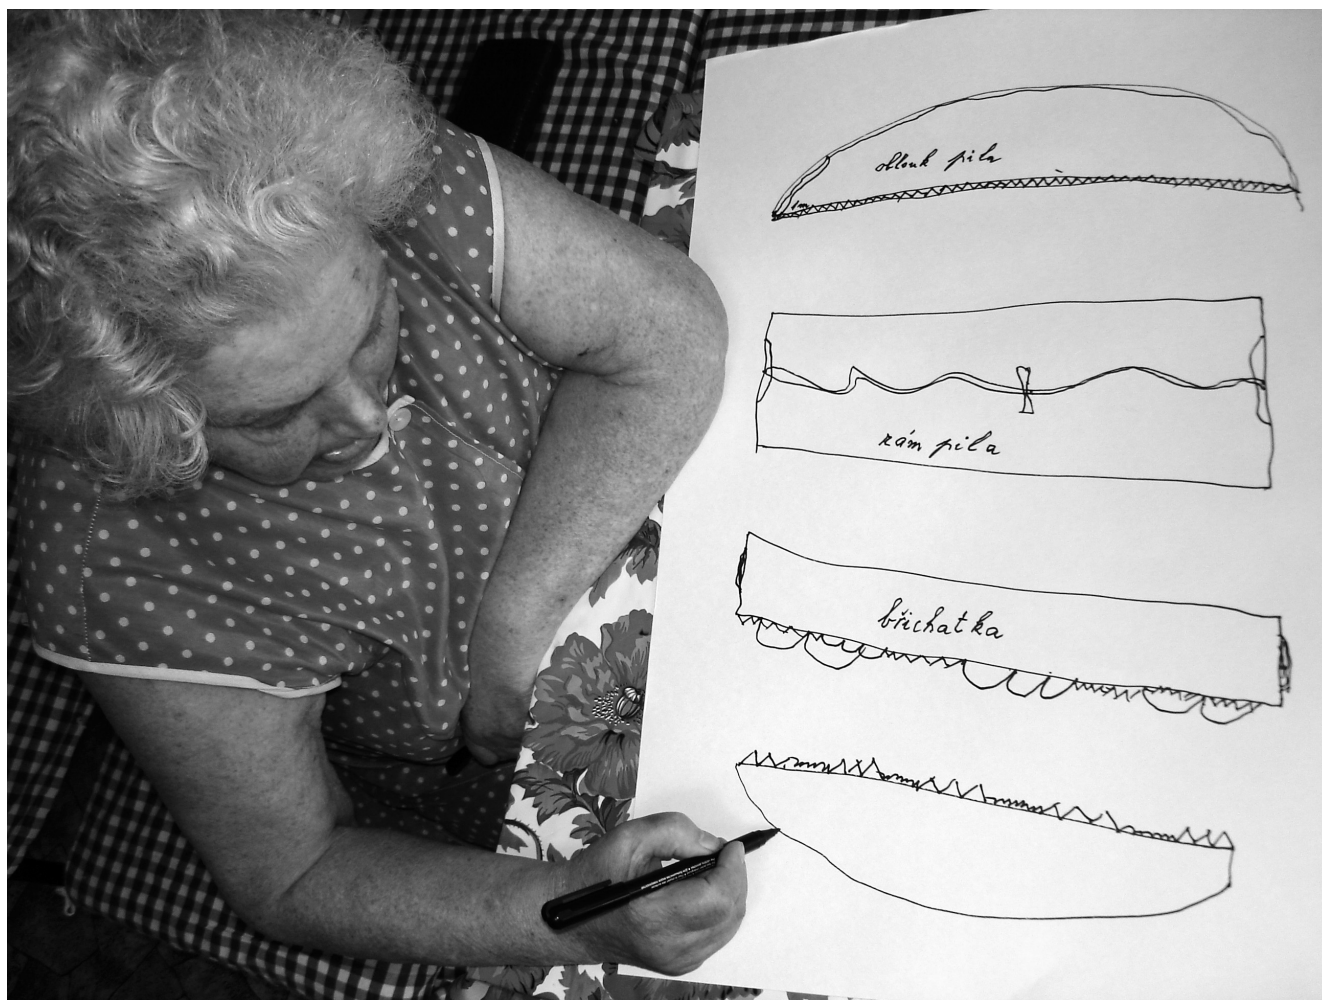 oblouk pila
rám pila
břichatka